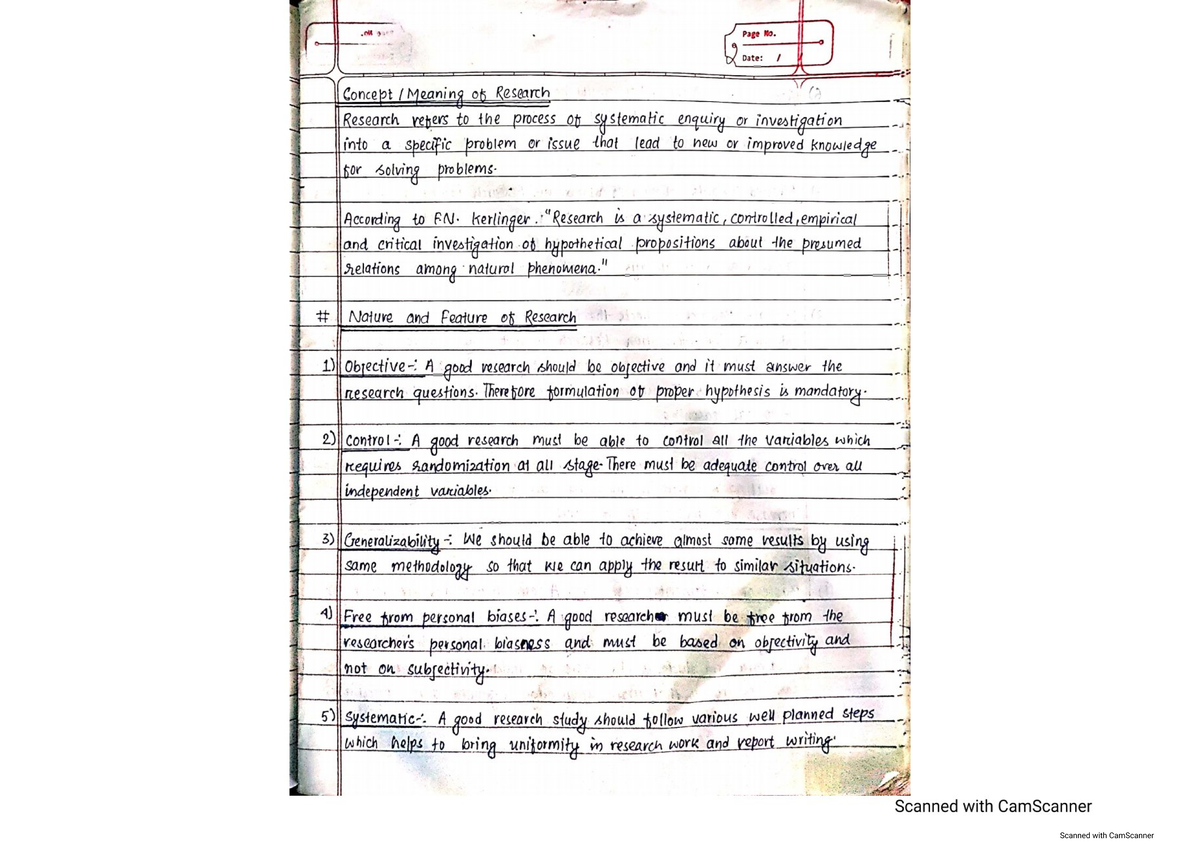 Page No.
Date: /
Concept / Meaning of Research
Research refers to the process of systematic enquiry or investigation
into a specific problem or issue that lead to new or improved knowledge
for solving problems.
According to F.N. Kerlinger :"Research is a systematic, controlled, empirical
and critical investigation of hypothetical propositions about the presumed
relations among natural phenomena."
# Nature and Feature of Research
1) Objective-: A good research should be objective and it must answer the
research questions. Therefore formulation of proper hypothesis is mandatory.
2) Control-: A good research must be able to control all the variables which
requires randomization at all stage. There must be adequate control over all
independent variables.
3) Generalizability-: We should be able to achieve almost same results by using
same methodology so that we can apply the result to similar situations.
4) Free from personal biases-: A good research must be free from the
researcher's personal biasness and must be based on objectivity and
not on subjectivity.
5) Systematic-: A good research study should follow various well planned steps
which helps to bring uniformity in research work and report writing.
Scanned with CamScanner
Scanned with CamScanner